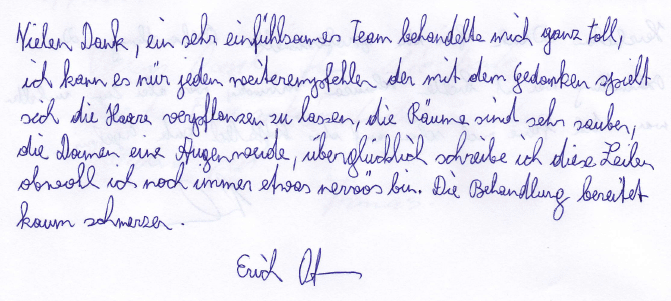 Vielen Dank, ein sehr einfühlsames Team behandelte mich ganz toll,
ich kann es nur jeden weiterempfehlen der mit dem Gedanken spielt
sich die Haare verpflanzen zu lassen, die Räume sind sehr sauber,
die Damen eine Augenweide, überglücklich schreibe ich diese Zeilen
obwohl ich noch immer etwas nervös bin. Die Behandlung bereitet
kaum schmerzen.
Erich